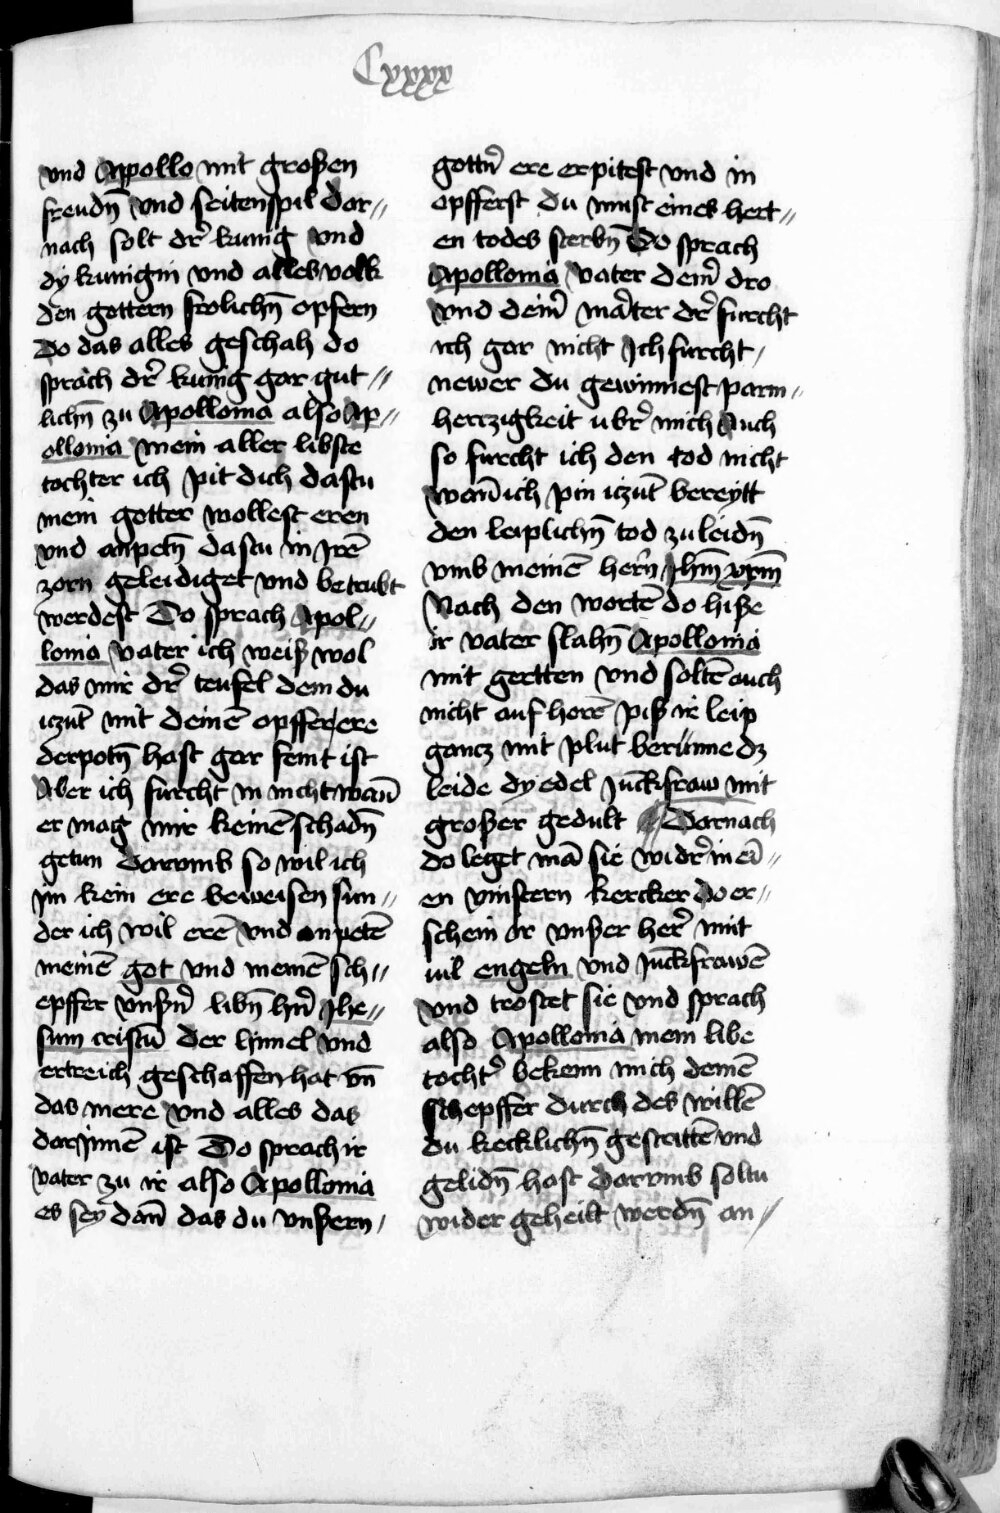 Cxxxx
vnd Apollo mit großen
freudn̄ vnd seitenspil dar〃
nach solt dr̄ kunig vnd
dy kunigin vnd alles volk
den gottern frolichn̄ opfern
Do das alles geschah do
sprach dr̄ kunig gar gut〃
lichn̄ zu Apollonia also Ap〃
ollonia mein aller libste
tochter ich pit dich dastu
mein gotter wollest eren
vnd anpetn̄ dastu in irē
zorn geleidiget vnd betrubt
werdest Do sprach Apol〃
lonia vater ich weiß wol
das mir dr̄ teufel dem du
iczūt mit deinē opffer ere
derpotn̄ hast gar feint ist
Aber ich furcht in nicht wan̄
er mag mir keinē schadn̄
getun Darvmb so wil ich
im kein ere beweisen sun〃
der ich wil erē vnd anpetē
meinē got vnd meinē sch〃
epffer vnßn̄ libn̄ hn̄ Jhe〃
sum cristū der himel vnd
ertreich geschaffen hat vn̄
das mere vnd alles das
darinnē ist Do sprach ir
vater zu ir also Apollonia
es sey dan̄ das du vnßern
gottn̄ ere erpitest vnd in
opfferst du must eines hert〃
en todes sterbn̄ Do sprach
Apollonia vater dein̄ dro
vnd dein̄ marter dr̄ furcht
ich gar nicht Ich furcht
newer du gewinnest parm〃
herczigkeit vbr̄ mich Auch
so furcht ich den tod nicht
wan̄ ich pin iczūt bereytt
den leiplichn̄ tod zu leidn̄
vmb meinē hern̄ Jhm̄ xpm̄
Nach den wortē do hiße
ir vater slahn̄ Apollonia
mit gertten vnd soltē auch
nicht auf horē piß ir leip
gancz mit plut berunne dz
leide dy edel Junckfraw mit
großer gedult Darnach
do leget mā sie widr̄ in ei〃
en vinstern kercker do er〃
schein ir vnßer her̄ mit
vil engeln vnd Junckfrawē
vnd trostet sie vnd sprach
also Apollonia mein libe
tochtr̄ bekenn mich deinē
schepffer durch des willē
du kecklichn̄ gestrittē vnd
gelidn̄ hast Darvmb soltu
wider geheilt werdn̄ an〃